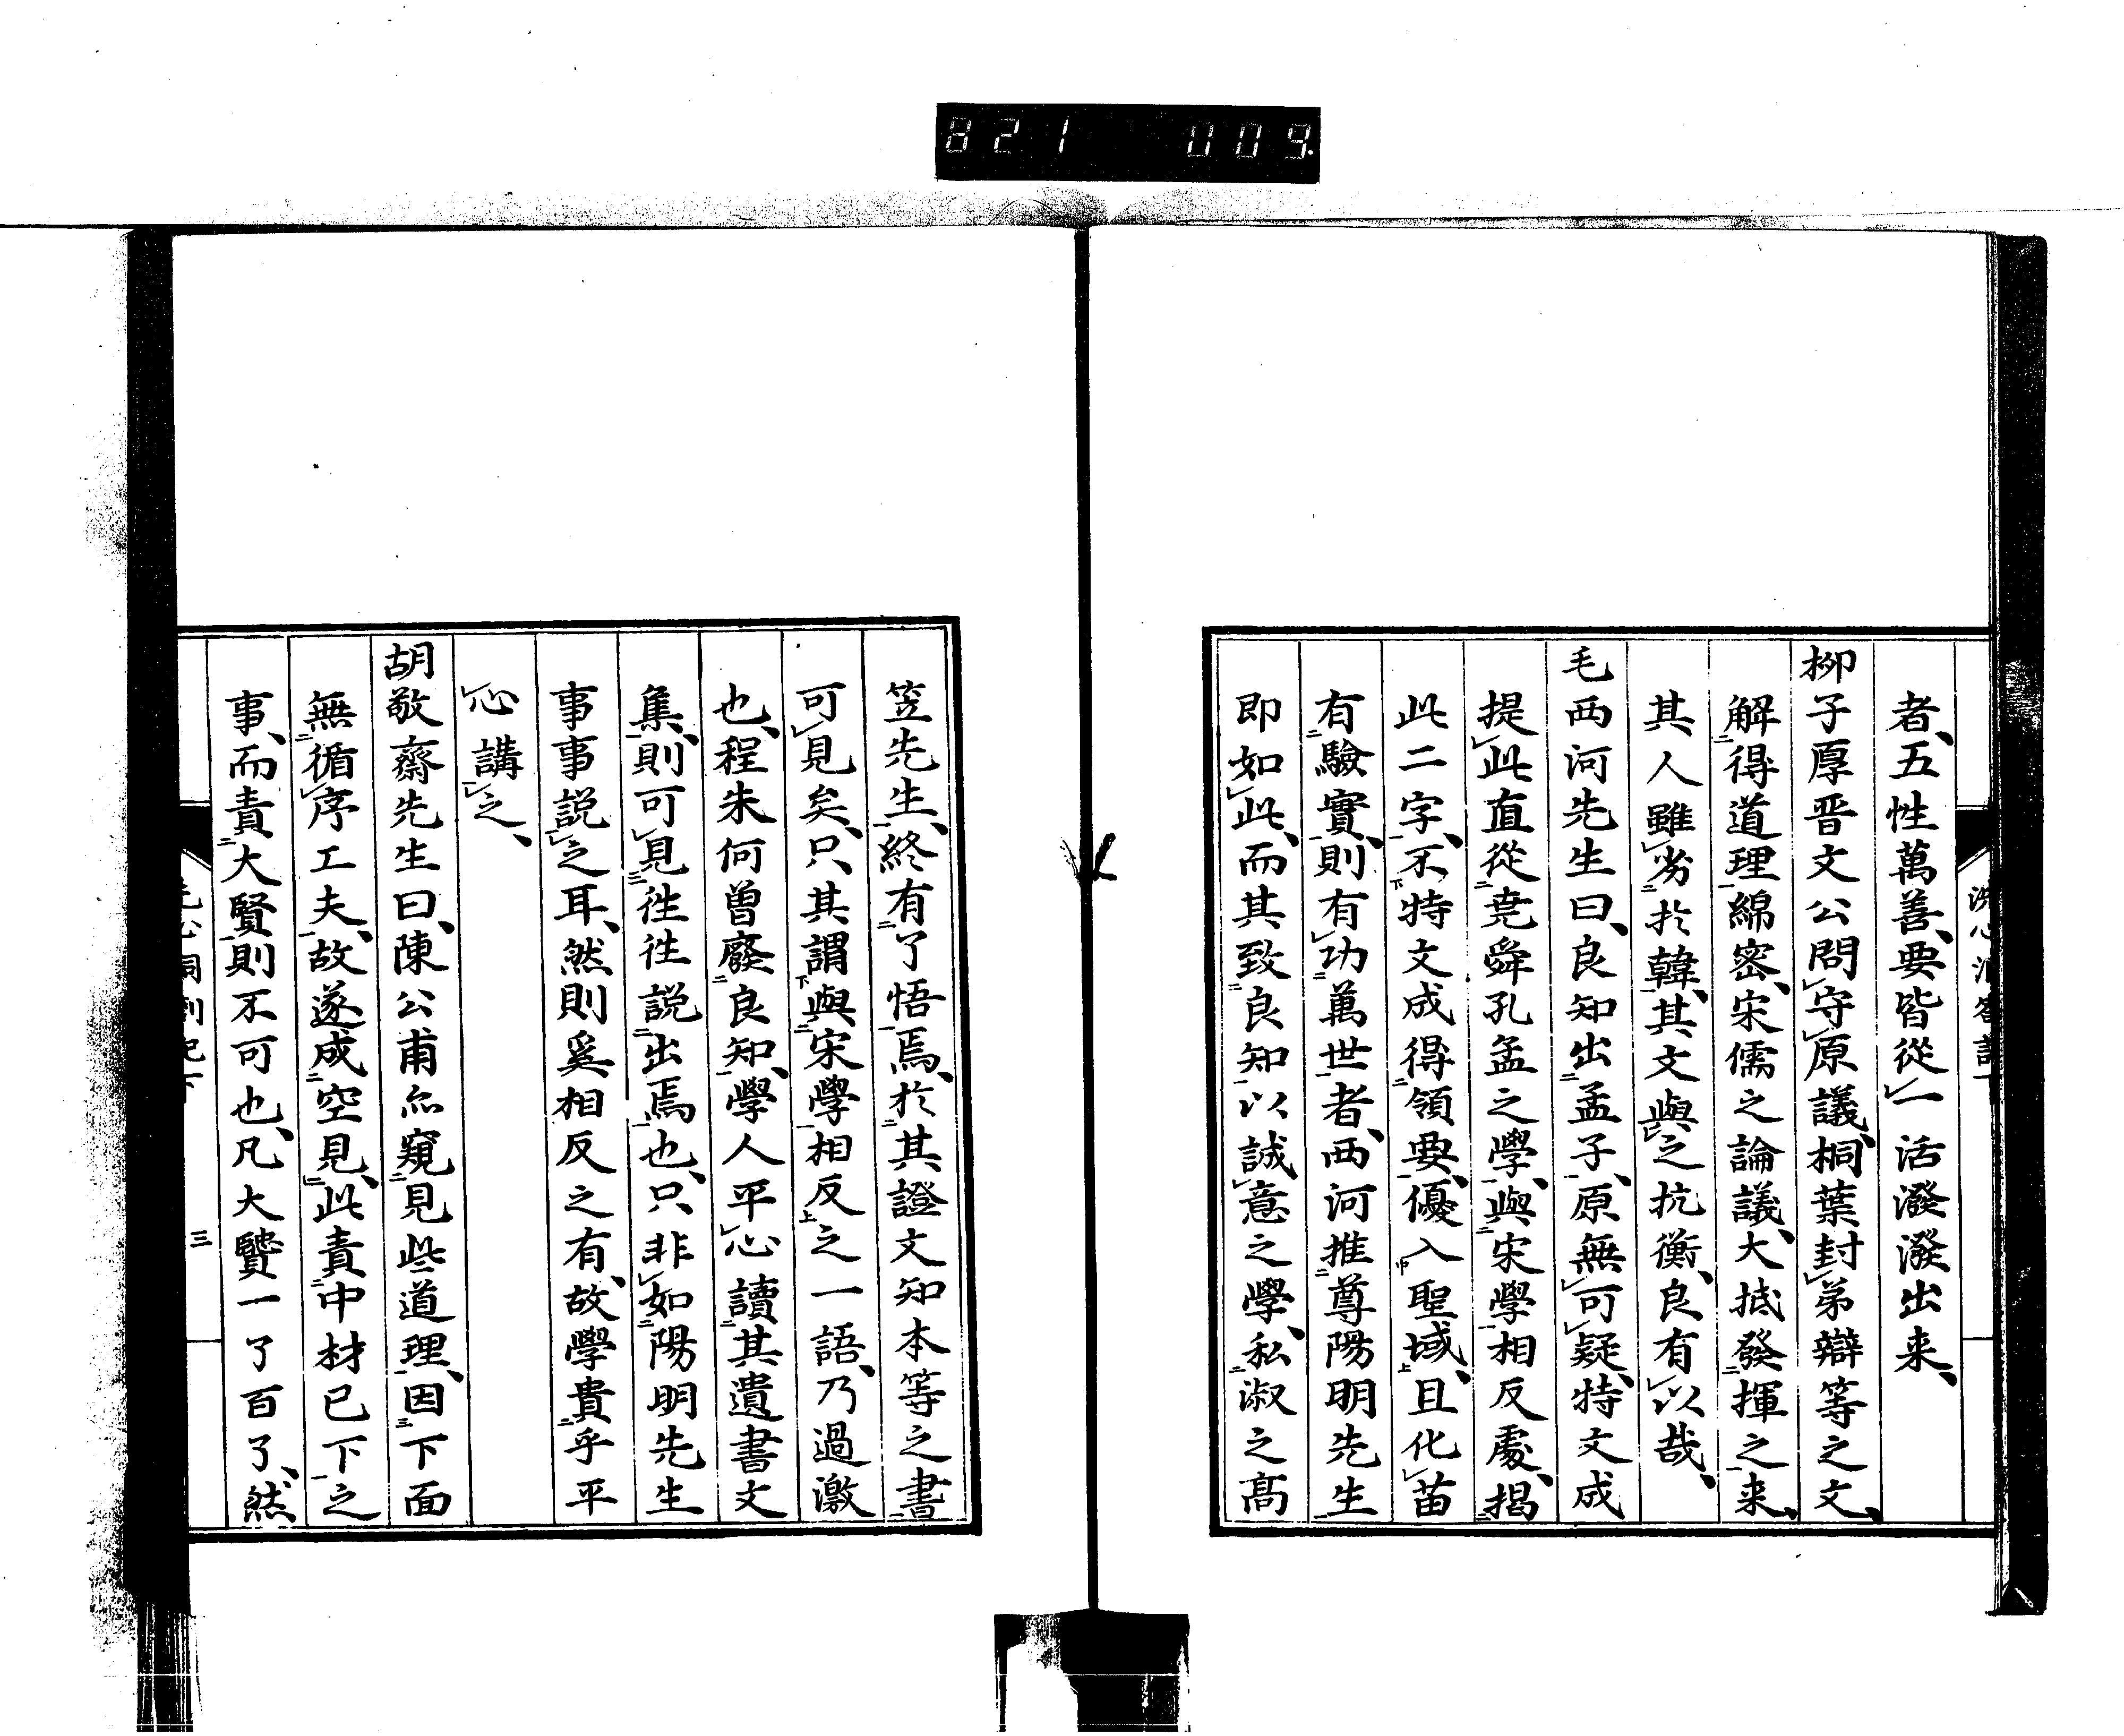 821 009
者、五性萬善、要皆從一活潑潑出来、
柳子厚晋文公問守原議、桐葉封弟辯等之文、
解得道理綿密、宋儒之論議、大抵發揮之来、
其人雖劣於韓、其文與之抗衡、良有以哉、
毛西河先生曰、良知出孟子、原無可疑、特文成
提此直從堯舜孔孟之學、與宋學相反處、揭
此二字、不特文成得領要、優入聖域、且化苗
有驗實、則有功萬世者、西河推尊陽明先生
即如此、而其致良知以誠意之學、私淑之高
笠先生、終有了悟焉、於其證文知本等之書
可見矣、只其謂與宋學相反之一語、乃過激
也、程朱何曽廢良知、學人平心讀其遺書文
集、則可見徃徃説出焉也、只非如陽明先生
事事説之耳、然則奚相反之有、故學貴乎平
心講之、
胡敬齋先生曰、陳公甫亦窺見些道理、因下面
無循序工夫、故遂成空見、此責中材已下之
事、而責大賢則不可也、凡大賢一了百了、然
三